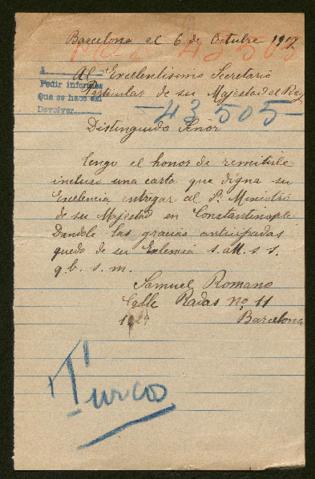 Barcelona el 6 de Octubre 1917
43505
Al Excelentisimo Secretario
Particular de su Majestad el Rey
Pedir informes
Que se hace en
Devolver
-43.505-
Distinguido Señor
Tengo el honor de remitirle
incluso una carta que digna su
Excelencia entregar al Sr. Ministro
de su Majestad en Constantinople
Dandole las gracias anticipadas
quedo de su Exlencia s. a. M. s. s.
q. b. s. m.
Samuel Romano
Calle Radas no 11
Barcelona
Turcos